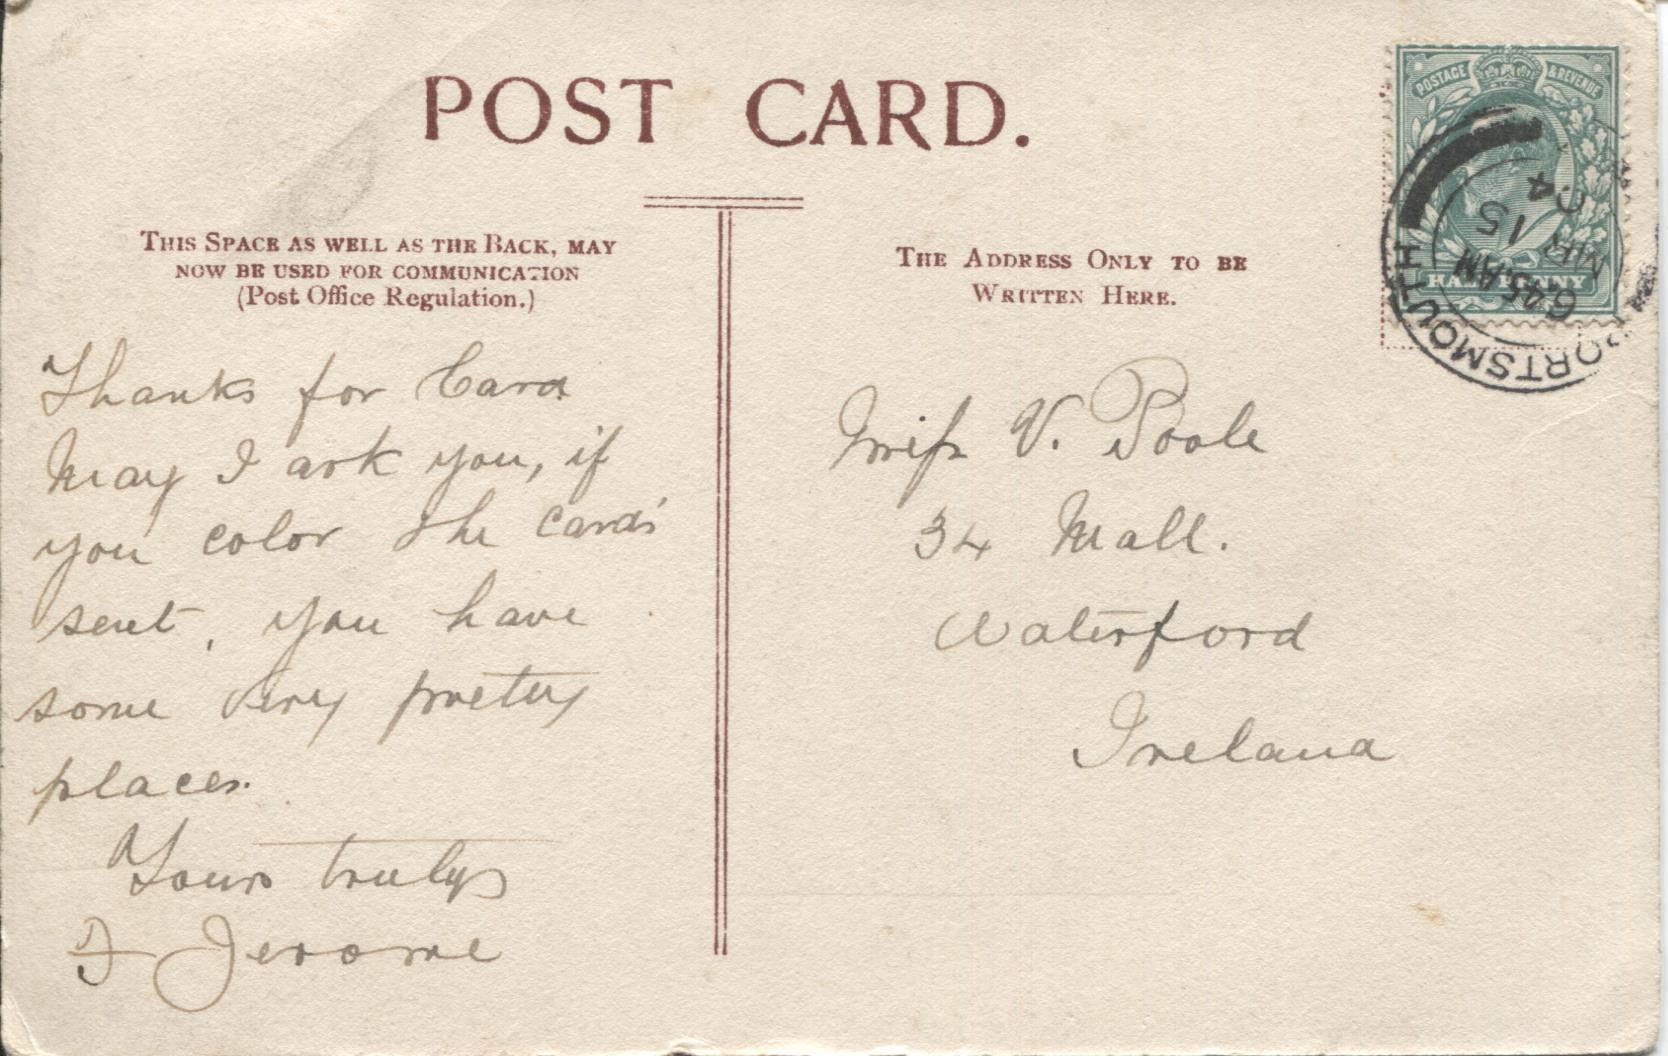 POST CARD.
THIS SPACE AS WELL AS THE BACK, MAY
NOW BE USED FOR COMMUNICATION
(Post Office Regulation.)
THE ADDRESS ONLY TO BE
WRITTEN HERE.
POSTAGE & REVENUE
HALFPENNY
PORTSMOUTH
6 45 AM
MR 15
04
Thanks for Card
May I ask you, if
you color the cards
sent, you have
some very pretty
places.
Yours truly
F Jerome
Miss V. Poole
34 Mall.
Waterford
Ireland